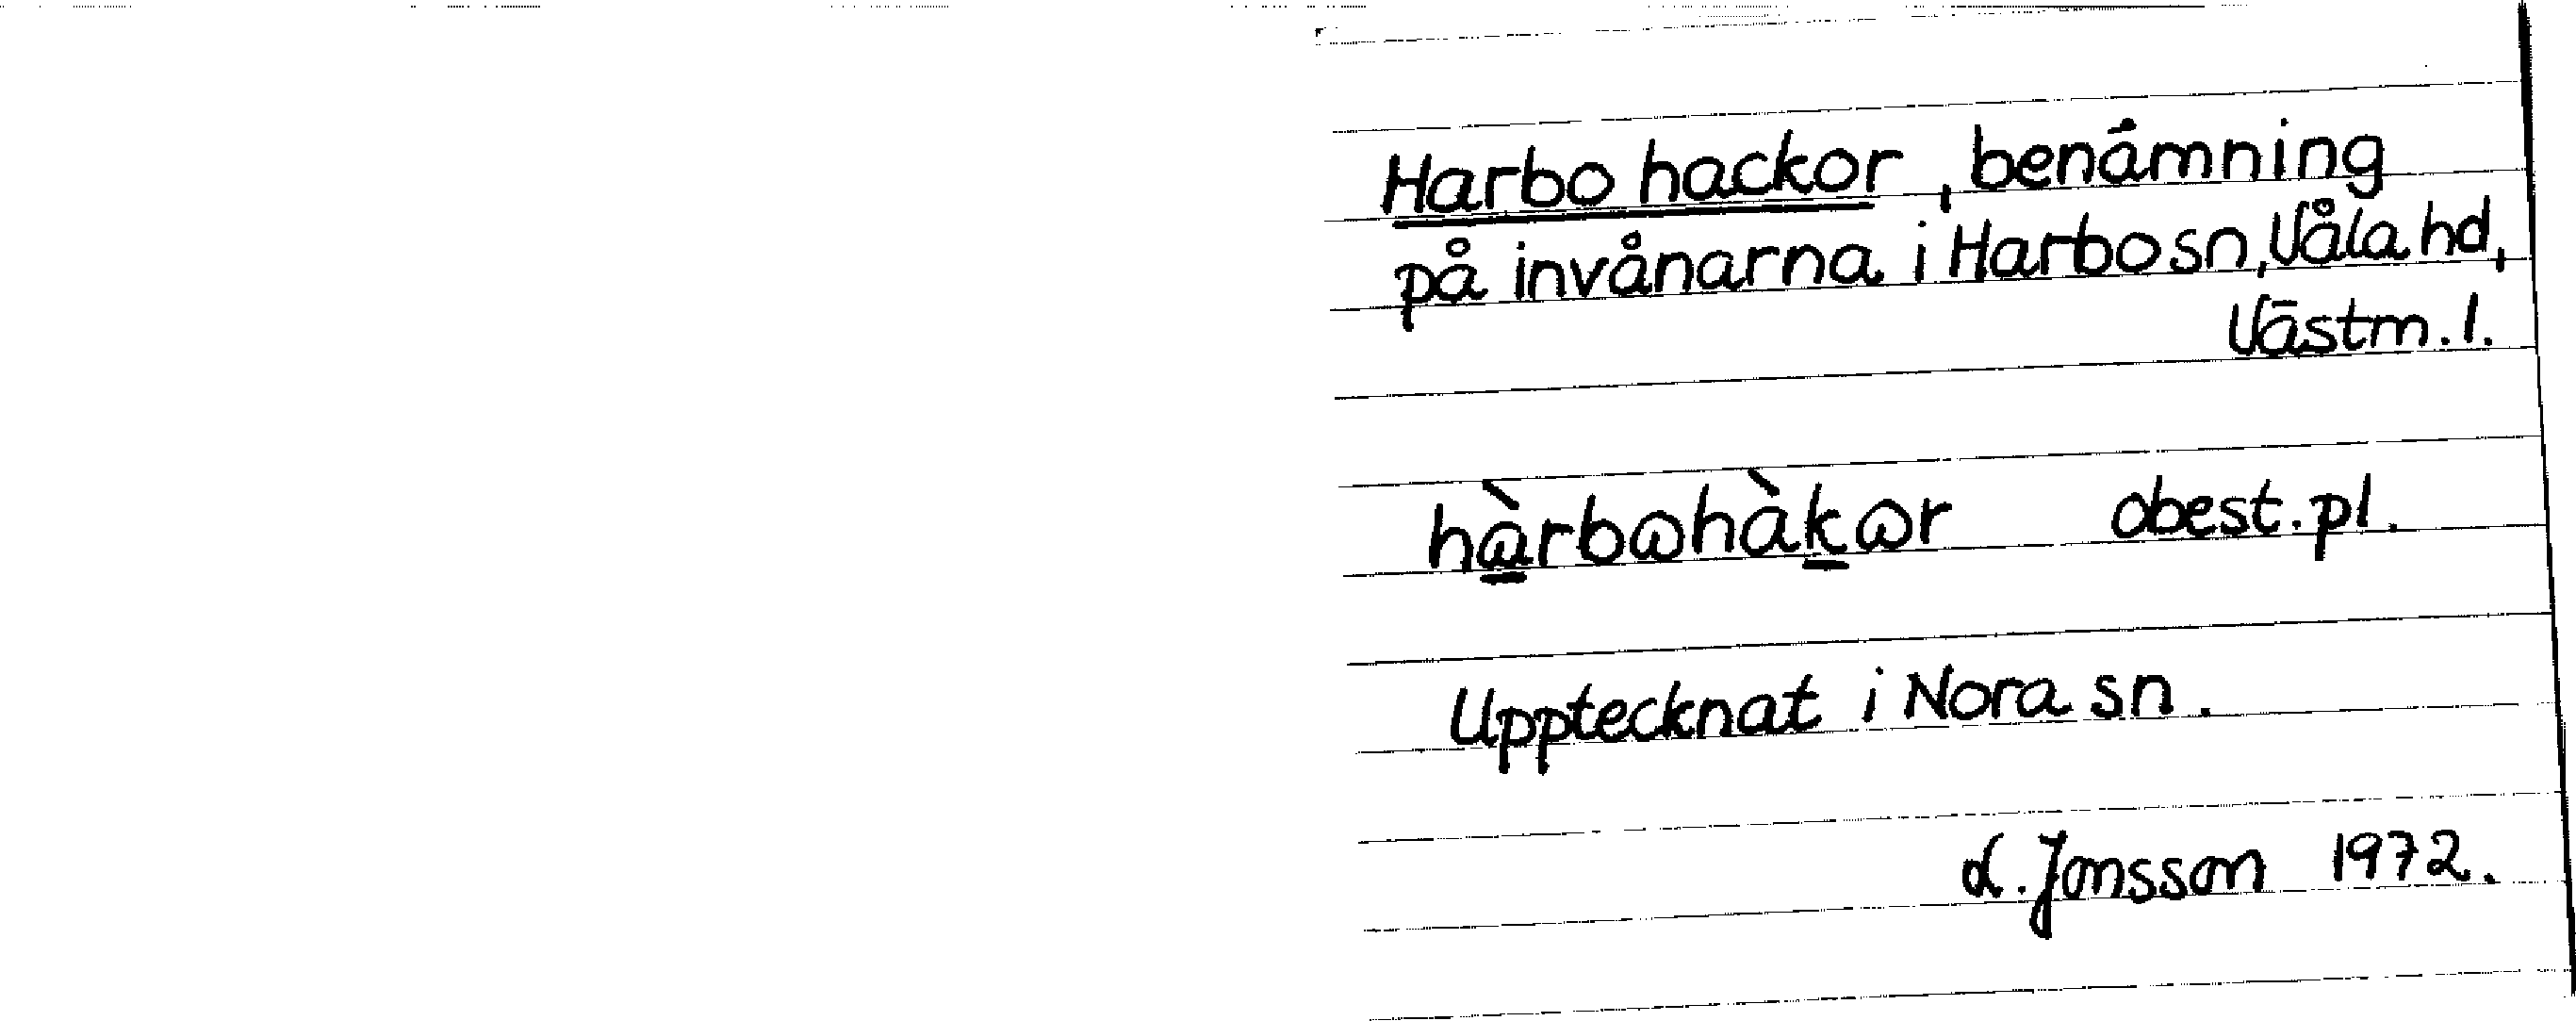 Harbo hackor, benämning
på invånarna i Harbo sn, Våla hd,
Västm. l.
hàrbɷhàkɷr obest. pl.
Upptecknat i Nora sn.
Jonsson 1972.